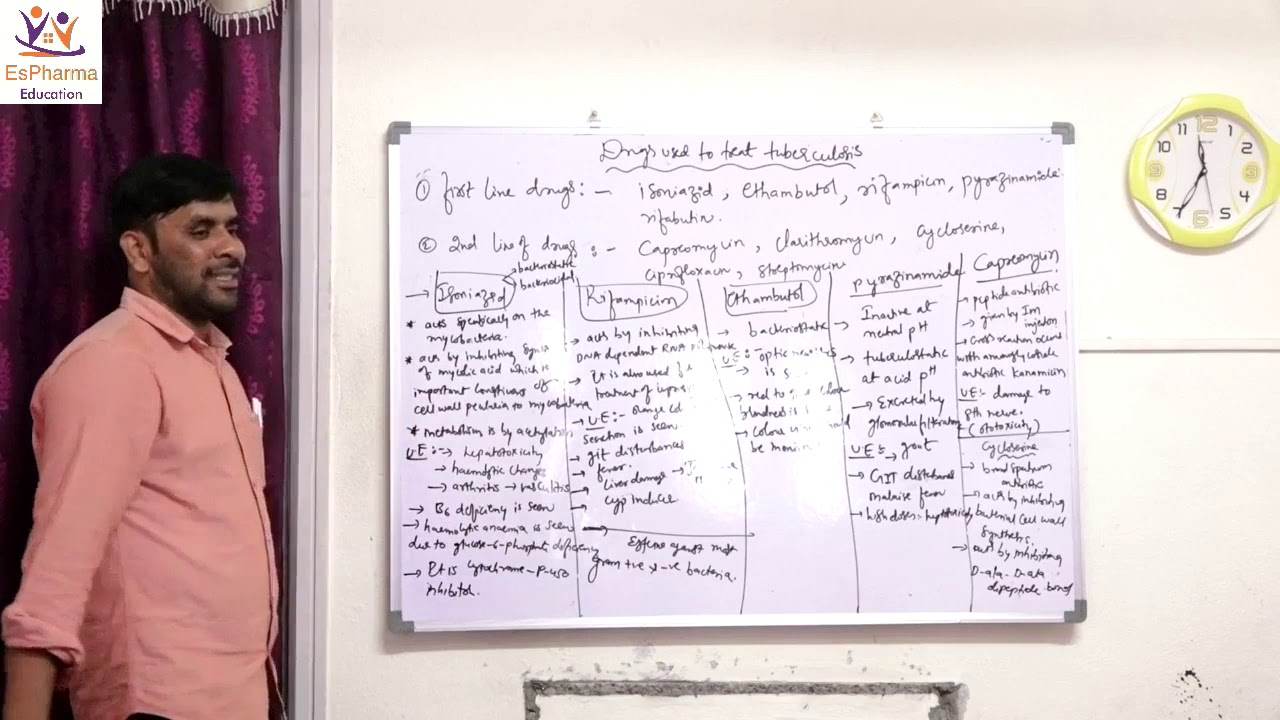 EsPharma
Education
Drugs used to treat tuberculosis
① first line drugs :- isoniazid, ethambutol, rifampicin, pyrazinamide
rifabutin.
② 2nd line of drugs :- Capreomycin, clarithromycin, cycloserine,
ciprofloxacin, streptomycin
→ Isoniazid
bacteriostatic
bactericidal
* acts specifically on the
mycobacteria.
* acts by inhibiting
of mycolic acid which is
important
cell wall peculiar to mycobacteria
* metabolism is by acetylation
→ hepatotoxicity
→ haemolytic changes
→ arthritis → vasculitis
→ B6 deficiency is seen
→ haemolytic anaemia is seen
due to glucose-6-phosphate deficiency
→ It is cytochrome-P-450
inhibitor.
Rifampicin
→ acts by inhibiting
DNA dependent RNA
→ It is also used
treatment of
→ orange
secretion is seen
→ git disturbances
→ fever.
→ liver damage →
→ cyp inducer
→ against most
gram +ve & -ve bacteria.
Ethambutol
→ bacteriostatic
optic
→ is
→ red to
blindness is
→ colour
be
Pyrazinamide
→ Inactive at
pH
→ tuberculostatic
at acid pH
→ Excreted by
glomerular filteration
→ gout
→ GIT
malaise fever
→ high doses:-
Capreomycin
→ peptide antibiotic
→ given by Im
injection
→ Cross reaction
with aminoglycoside
antibiotic kanamicin
damage to
8th nerve.
(ototoxicity)
Cycloserine
→ broad spectrum
antibiotic
→ acts by inhibiting
bacterial cell wall
synthesis.
→ acts by inhibiting
D-ala-D-ala
dipeptide bond
12
1
2
3
4
5
6
7
8
9
10
11